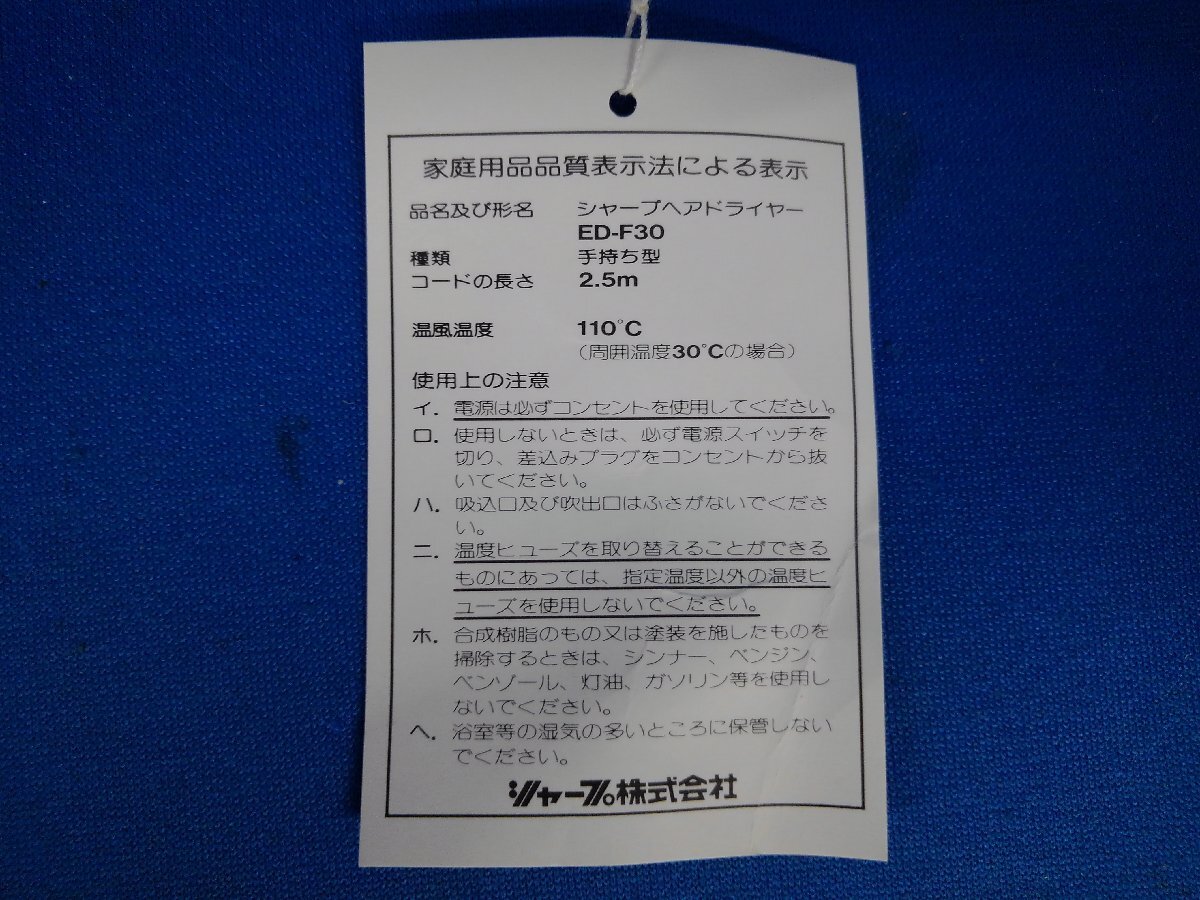 家庭用品品質表示法による表示
品名及び形名 シャープヘアドライヤー
ED-F30
種類 手持ち型
コードの長さ 2.5m
温風温度 110°C
（周囲温度30°Cの場合）
使用上の注意
イ. 電源は必ずコンセントを使用してください。
ロ. 使用しないときは、必ず電源スイッチを
切り、差込みプラグをコンセントから抜
いてください。
ハ. 吸込口及び吹出口はふさがないでくださ
い。
ニ. 温度ヒューズを取り替えることができる
ものにあっては、指定温度以外の温度ヒ
ューズを使用しないでください。
ホ. 合成樹脂のもの又は塗装を施したものを
掃除するときは、シンナー、ベンジン、
ベンゾール、灯油、ガソリン等を使用し
ないでください。
ヘ. 浴室等の湿気の多いところに保管しない
でください。
シャープ株式会社